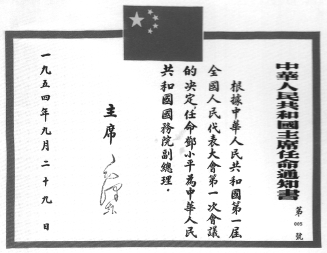 中華人民共和國主席任命通知書
第
號
根據中華人民共和國第一屆
全國人民代表大會第一次會議
的决定,任命鄧小平為中華人民
共和國國務院副總理.
主席
毛澤東
一九五四年九月二十九日